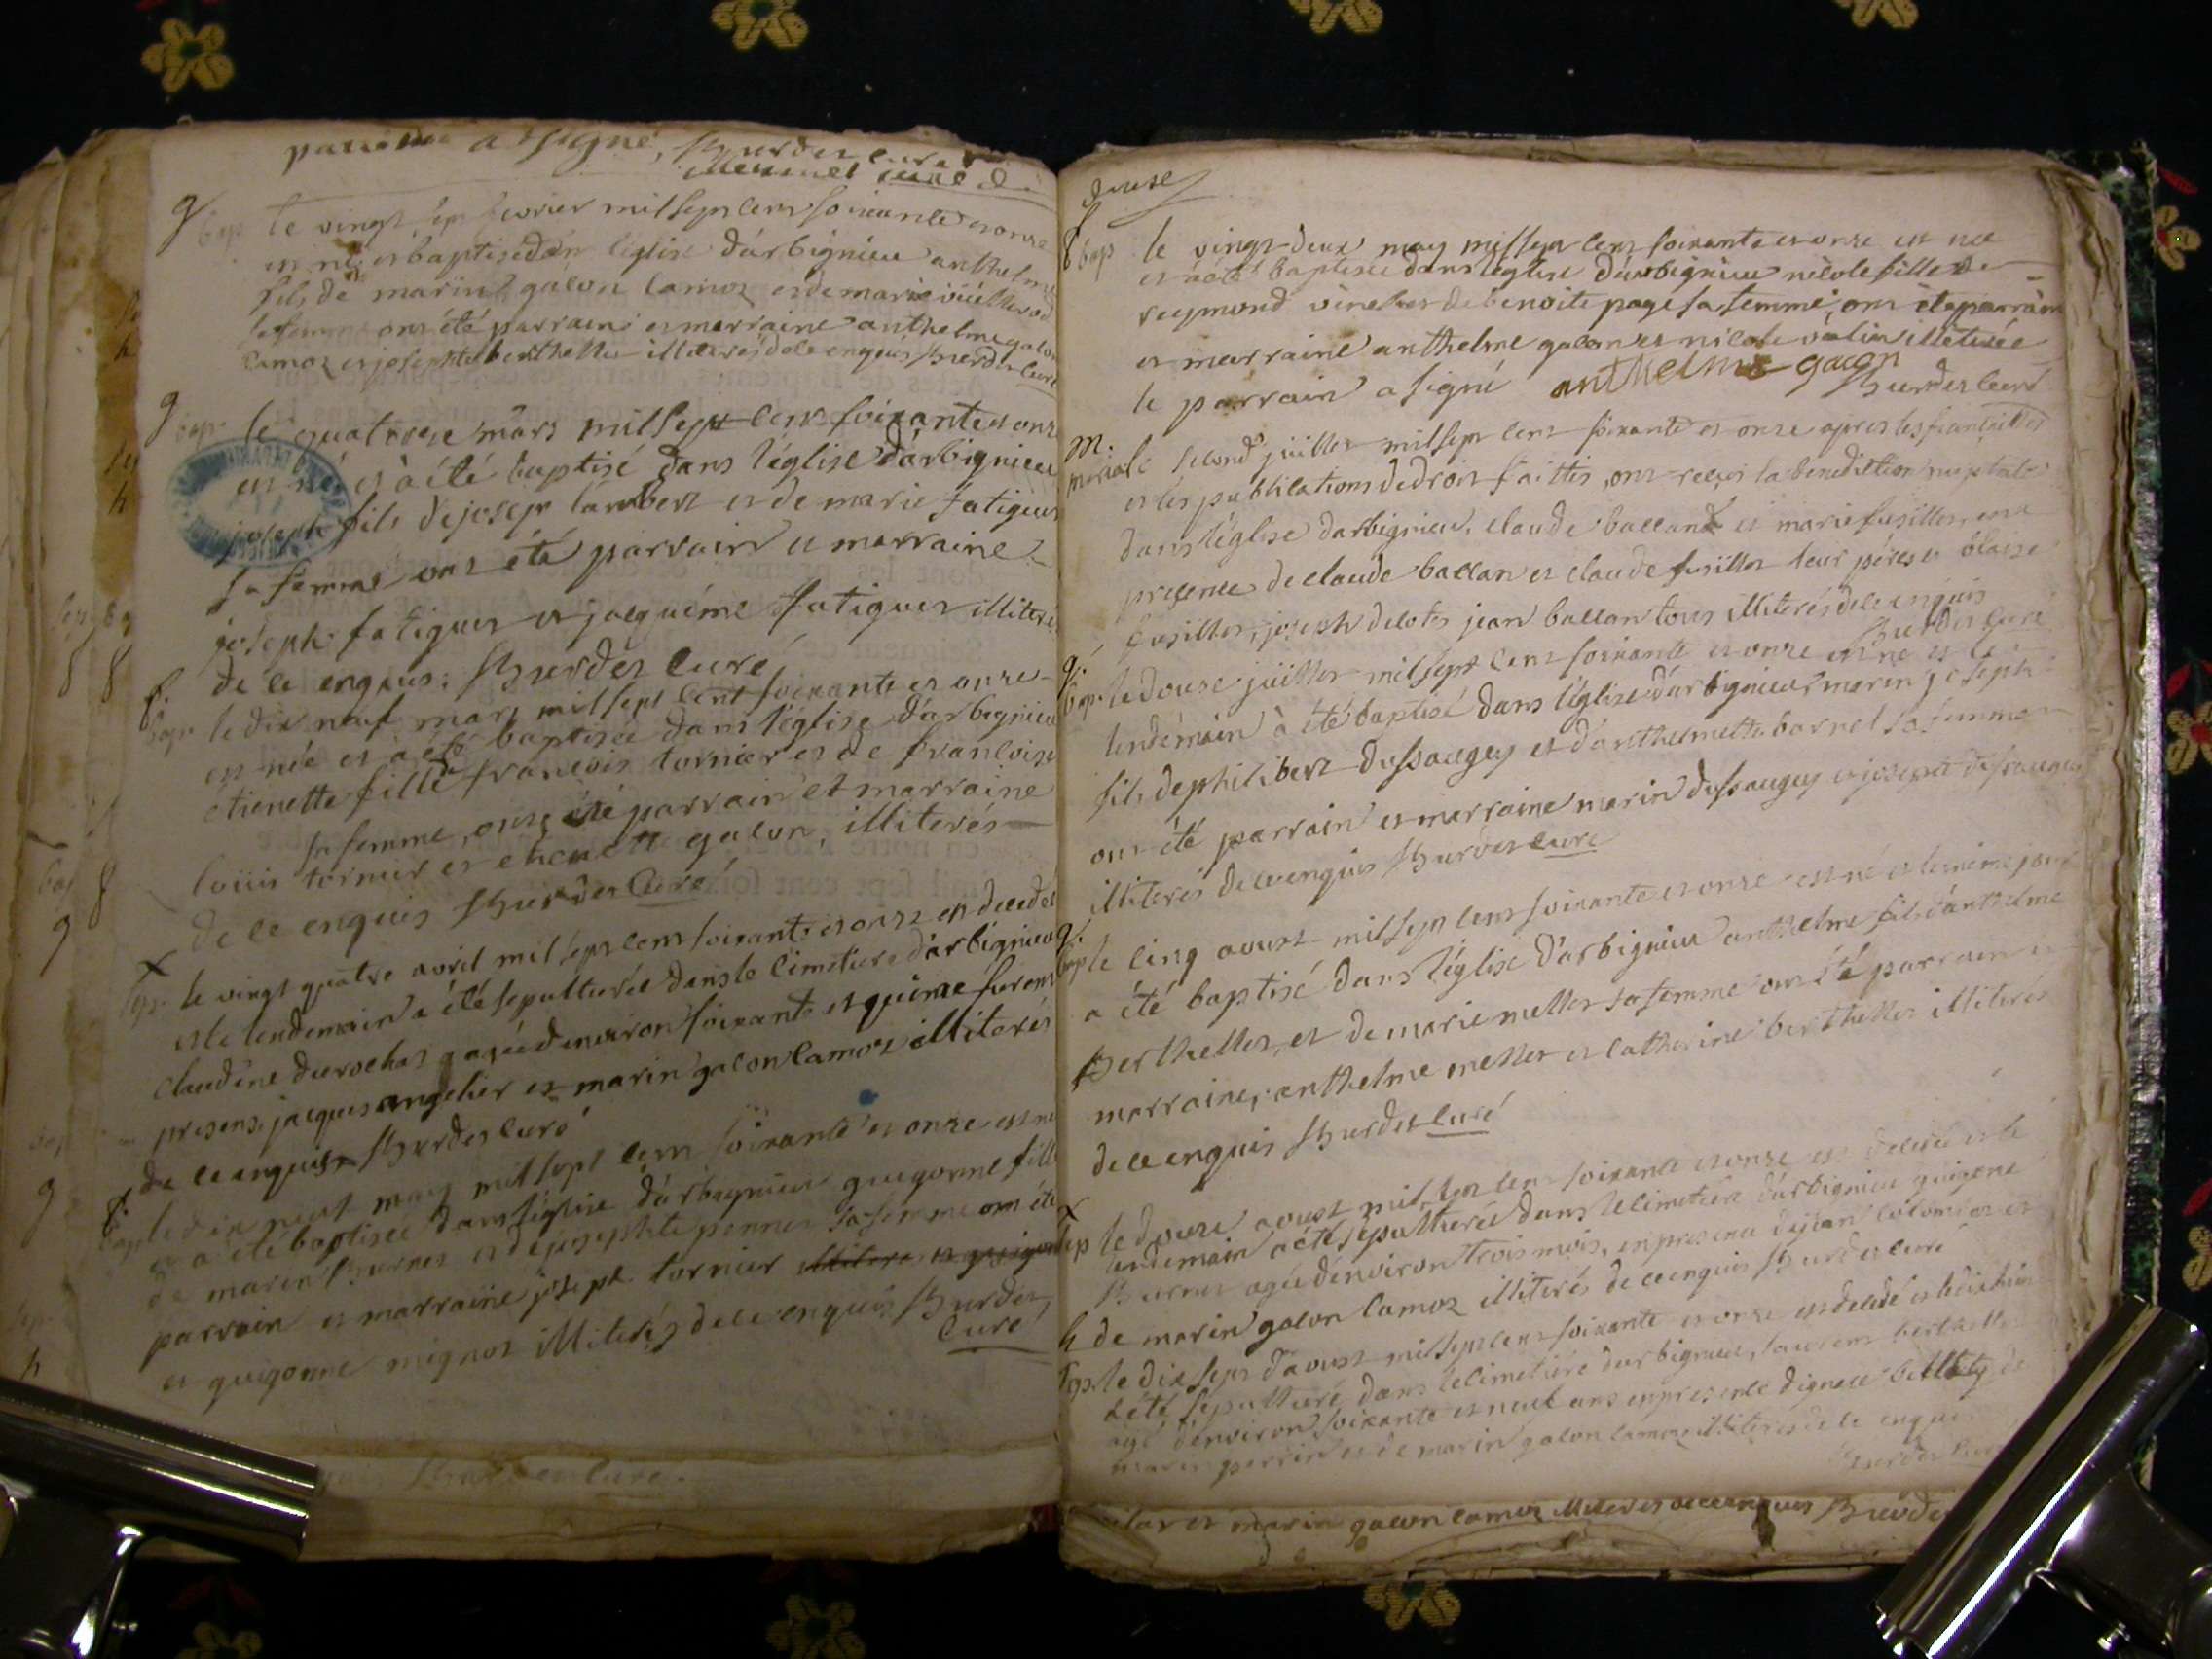 parrain a signé, Burdet curé
g
bap le vingt sep fevrier mil sept cent soixante et onze
est né et baptisé dan l'église d'arbignieu anthelme
fils de marin galon lamoz et de marie
sa femme ont été parrain et marraine anthelme galon
lamoz et josephte berthellet illiterés de ce enquis Burdet curé
g
bap. le quatorze mars mil sept cent soixante et onze
est né et a été baptisé dans l'église d'arbignieu
joseph fils de joseph lambert et de marie fatiguet
sa femme ont été parrain et marraine
joseph fatiguet et jacquéme fatiguet illiterés
de ce enquis: Burdet curé
f.
bap. le dix neuf mars mil sept cent soixante et onze
est née et a été baptisée dans l'église d'arbignieu
etienette fille francois tornier et de francoise
sa femme, ont été parrain et marraine
louis tornier et etienette galon, illiterés
de ce enquis Burdet curé
x
sep. le vingt quatre avril mil sept cent soixante et onze est decedée
et le lendemain a été sepulturée dans le cimetiere d'arbignieu
claudine durochat agée d'environ soixante et quinze furent
presens jacques angelier et marin galon lamoz illiterés
de ce enquis Burdet curé
f.
bap le dix neuf may mil sept cent soixante et onze est née
et a été baptisée dans l'église d'arbignieu guigonne fille
de marin Burnet et de josephte pennet sa femme ont été
parrain et marraine joseph tornier illitere et guigon
et guigonne mignot illiterés de ce enquis Burdet
curé
douze
f
bap le vingt-deux may mil sept cent soixante et onze est née
et a été baptisée dans l'église d'arbignieu nicole fille de
reymond de benoite page sa femme, ont été parrain
et marraine anthelme galon et nicole illeterée
le parrain a signé anthelme galon
Burdet curé
m.
mariale second juillet mil sept cent soixante et onze apres les fiancailles
et les publications de droit faittes, ont reçus la benediction nuptiale
dans l'église d'arbignieu, claude balland et marie fusillet, en
presence de claude ballan et claude fusillet leur péres et blaise
fusillet, joseph jean ballan tous illiterés de ce enquis
Burdet curé
g.
bap. le douse juillet mil sept cent soixante et onze est né et le
lendemain a été baptisé dans l'église d'arbignieu marin joseph
fils de philibert dussaugey et d'anthelmette barnel sa femme
ont été parrain et marraine marin dussaugey et josepte dussaugey
illiterés de ce enquis Burdet curé
g.
bap le cinq aoust mil sept cent soixante et onze est né et le même jour
a été baptisé dans l'église d'arbignieu anthelme fils d'anthelme
Berthellet, et de marie mellet sa femme ont été parrain et
marraine, anthelme mellet et catherine berthellet illiterés
de ce enquis Burdet curé
x
sep le douze aoust mil sept cent soixante et onze est decedé et le
lendemain a été sepulturée dans le cimetiére d'arbignieu guigone
Burnet agée d'environ trois mois, en presence de jean colomier et
de marin galon lamoz illiterés de ce enquis Burdet curé
h
sep. le dix sept d'aoust mil sept cent soixante et onze est decedé et le dixhuit
a été sepulturé dans le cimetiére d'arbignieu, laurent berthellet
agé d'environ soixante et neuf ans en presence d'ignace de
marin perrin et de marin galon lamoz illiteres de ce enquis
Burdet curé
et marin galon lamoz illiterés de ce enquis Burdet